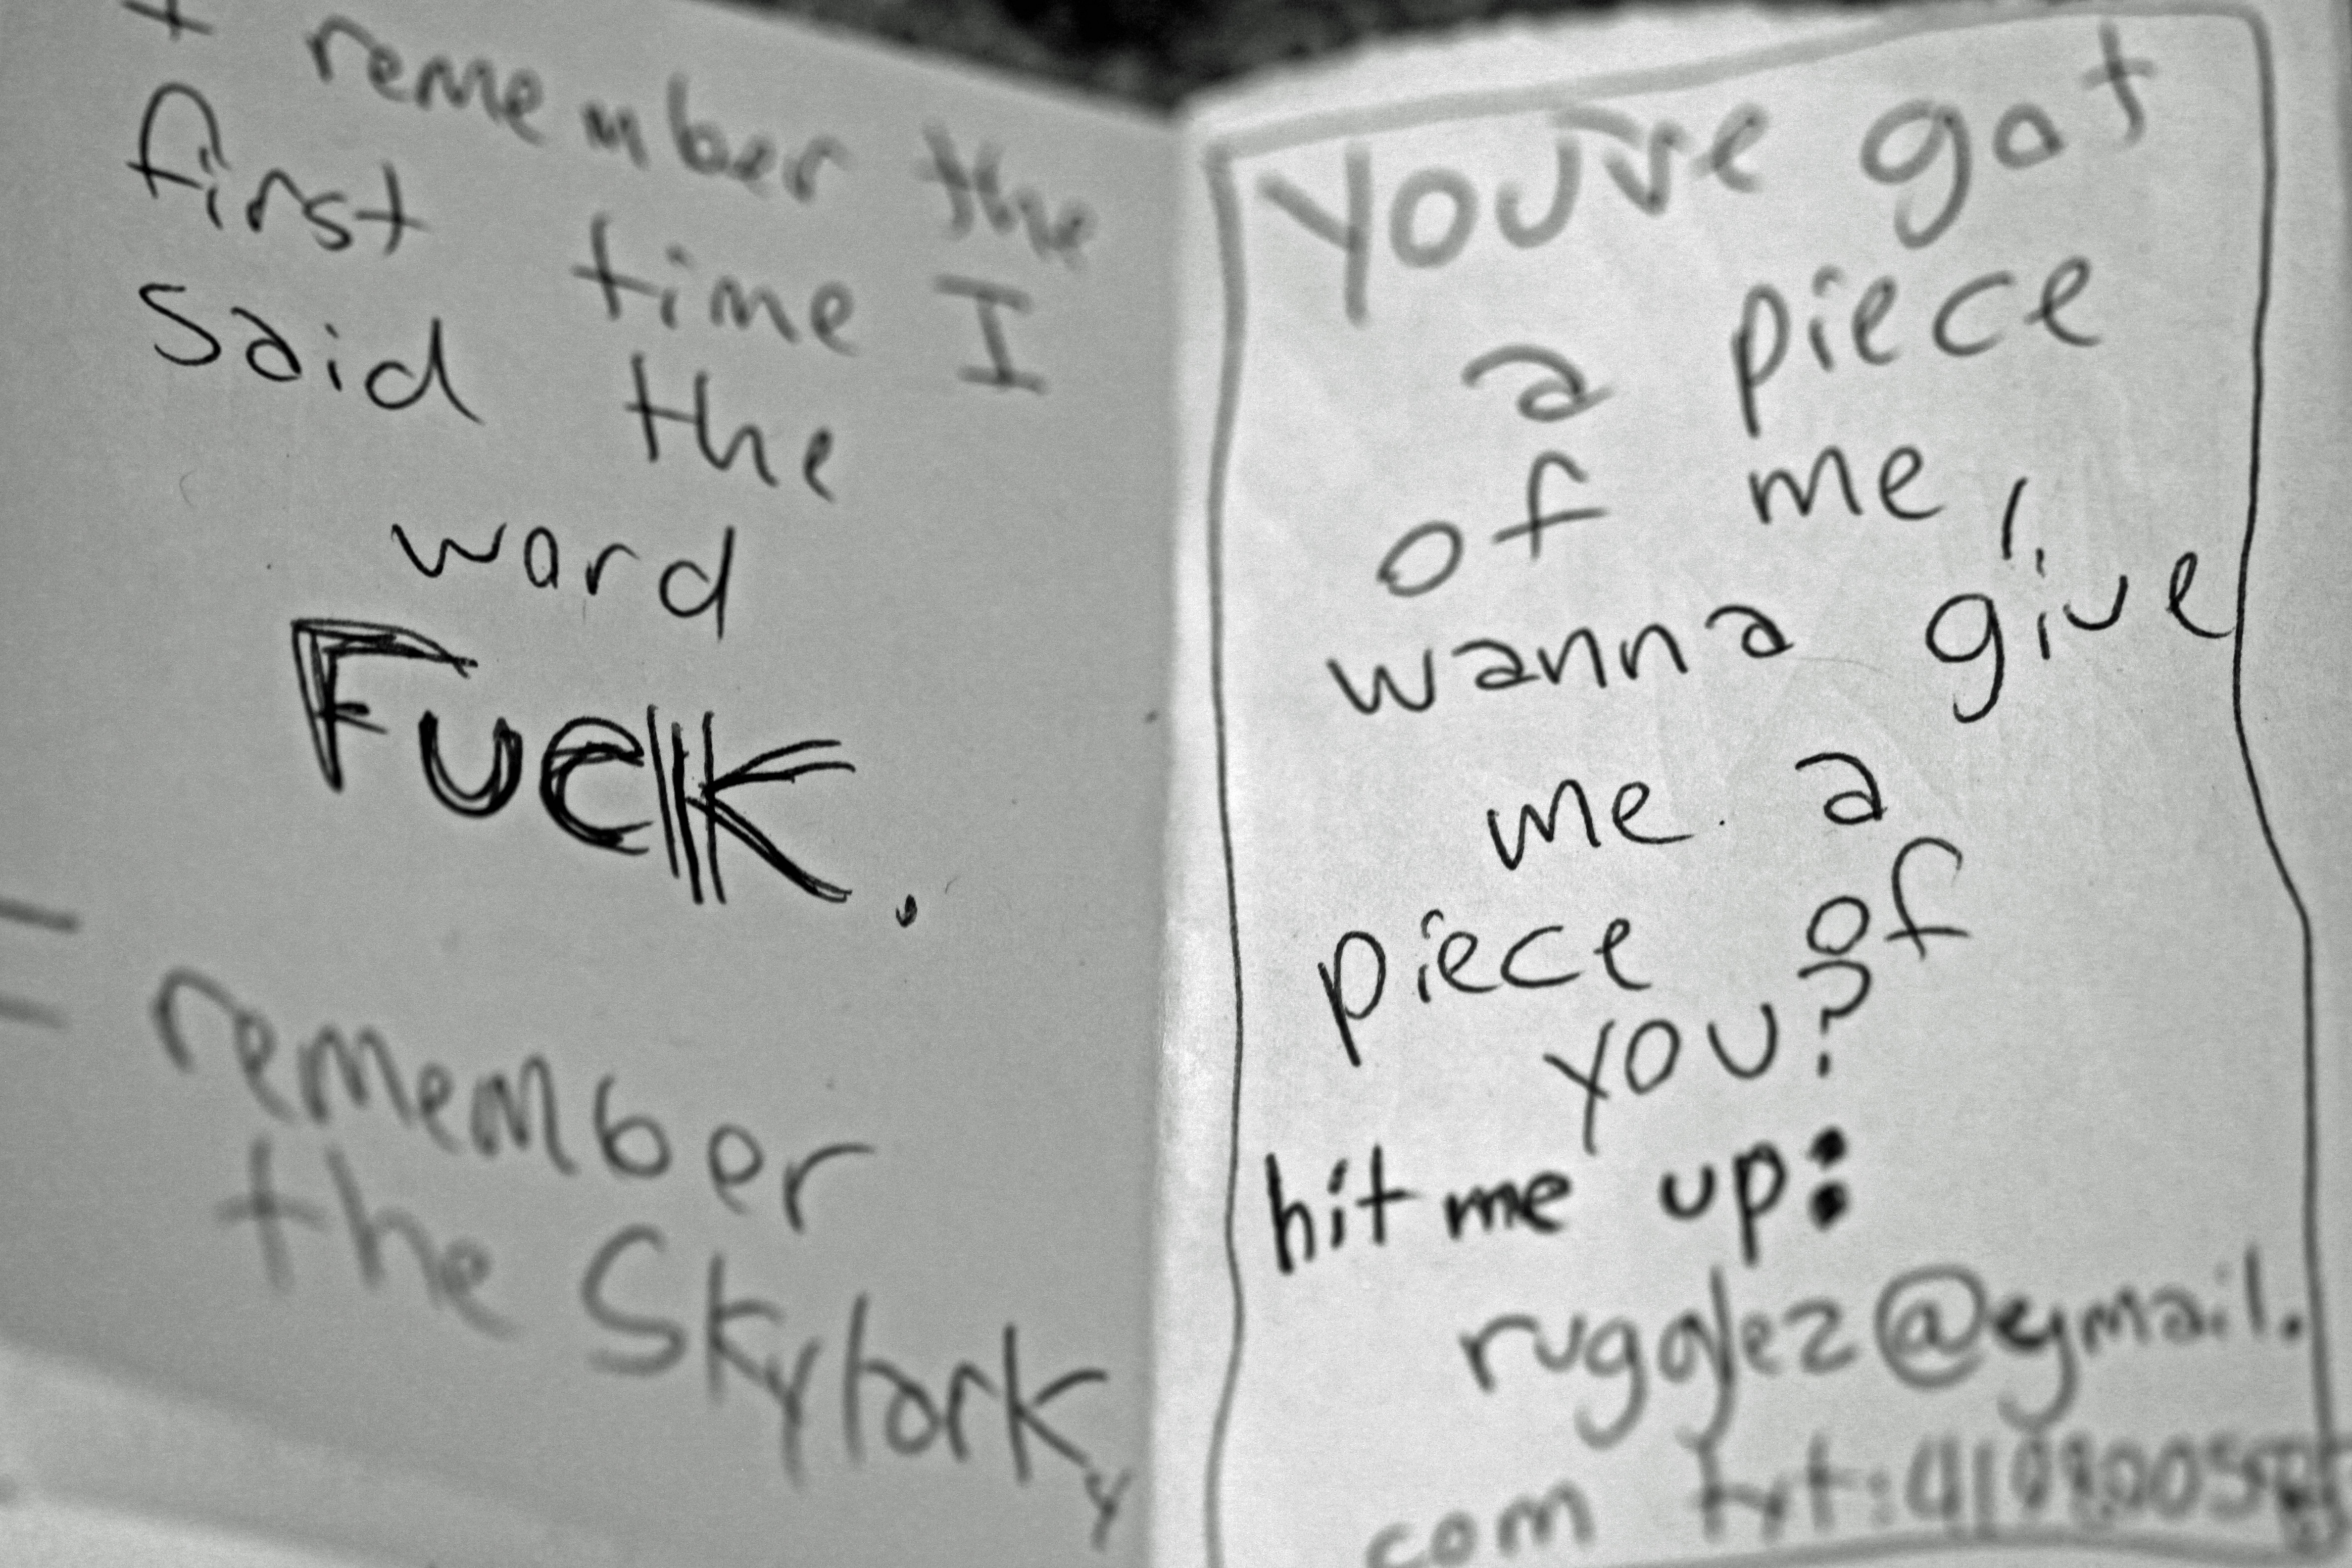 + remember the
first time I
said the
word
Fuck.
= remember
the Skylark
You've got
a piece
of me,
wanna give
me a
piece of
you?
hit me up:
rugglez@gmail.
com txt: